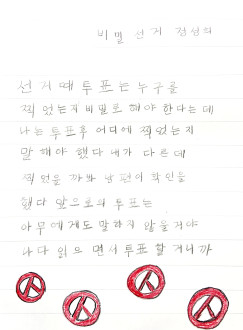 비밀 선거 정상희
선거 때 투표는 누구를
찍었는지 비밀로 해야 한다는데
나는 투표후 어디에 찍었는지
말 해야 했다 내가 다른 데
찍었을 까봐 남편이 확인을
했다 앞으로의 투표는
아무에게도 말하지 않을거야
나 다 읽으 면서 투표 할 거니까